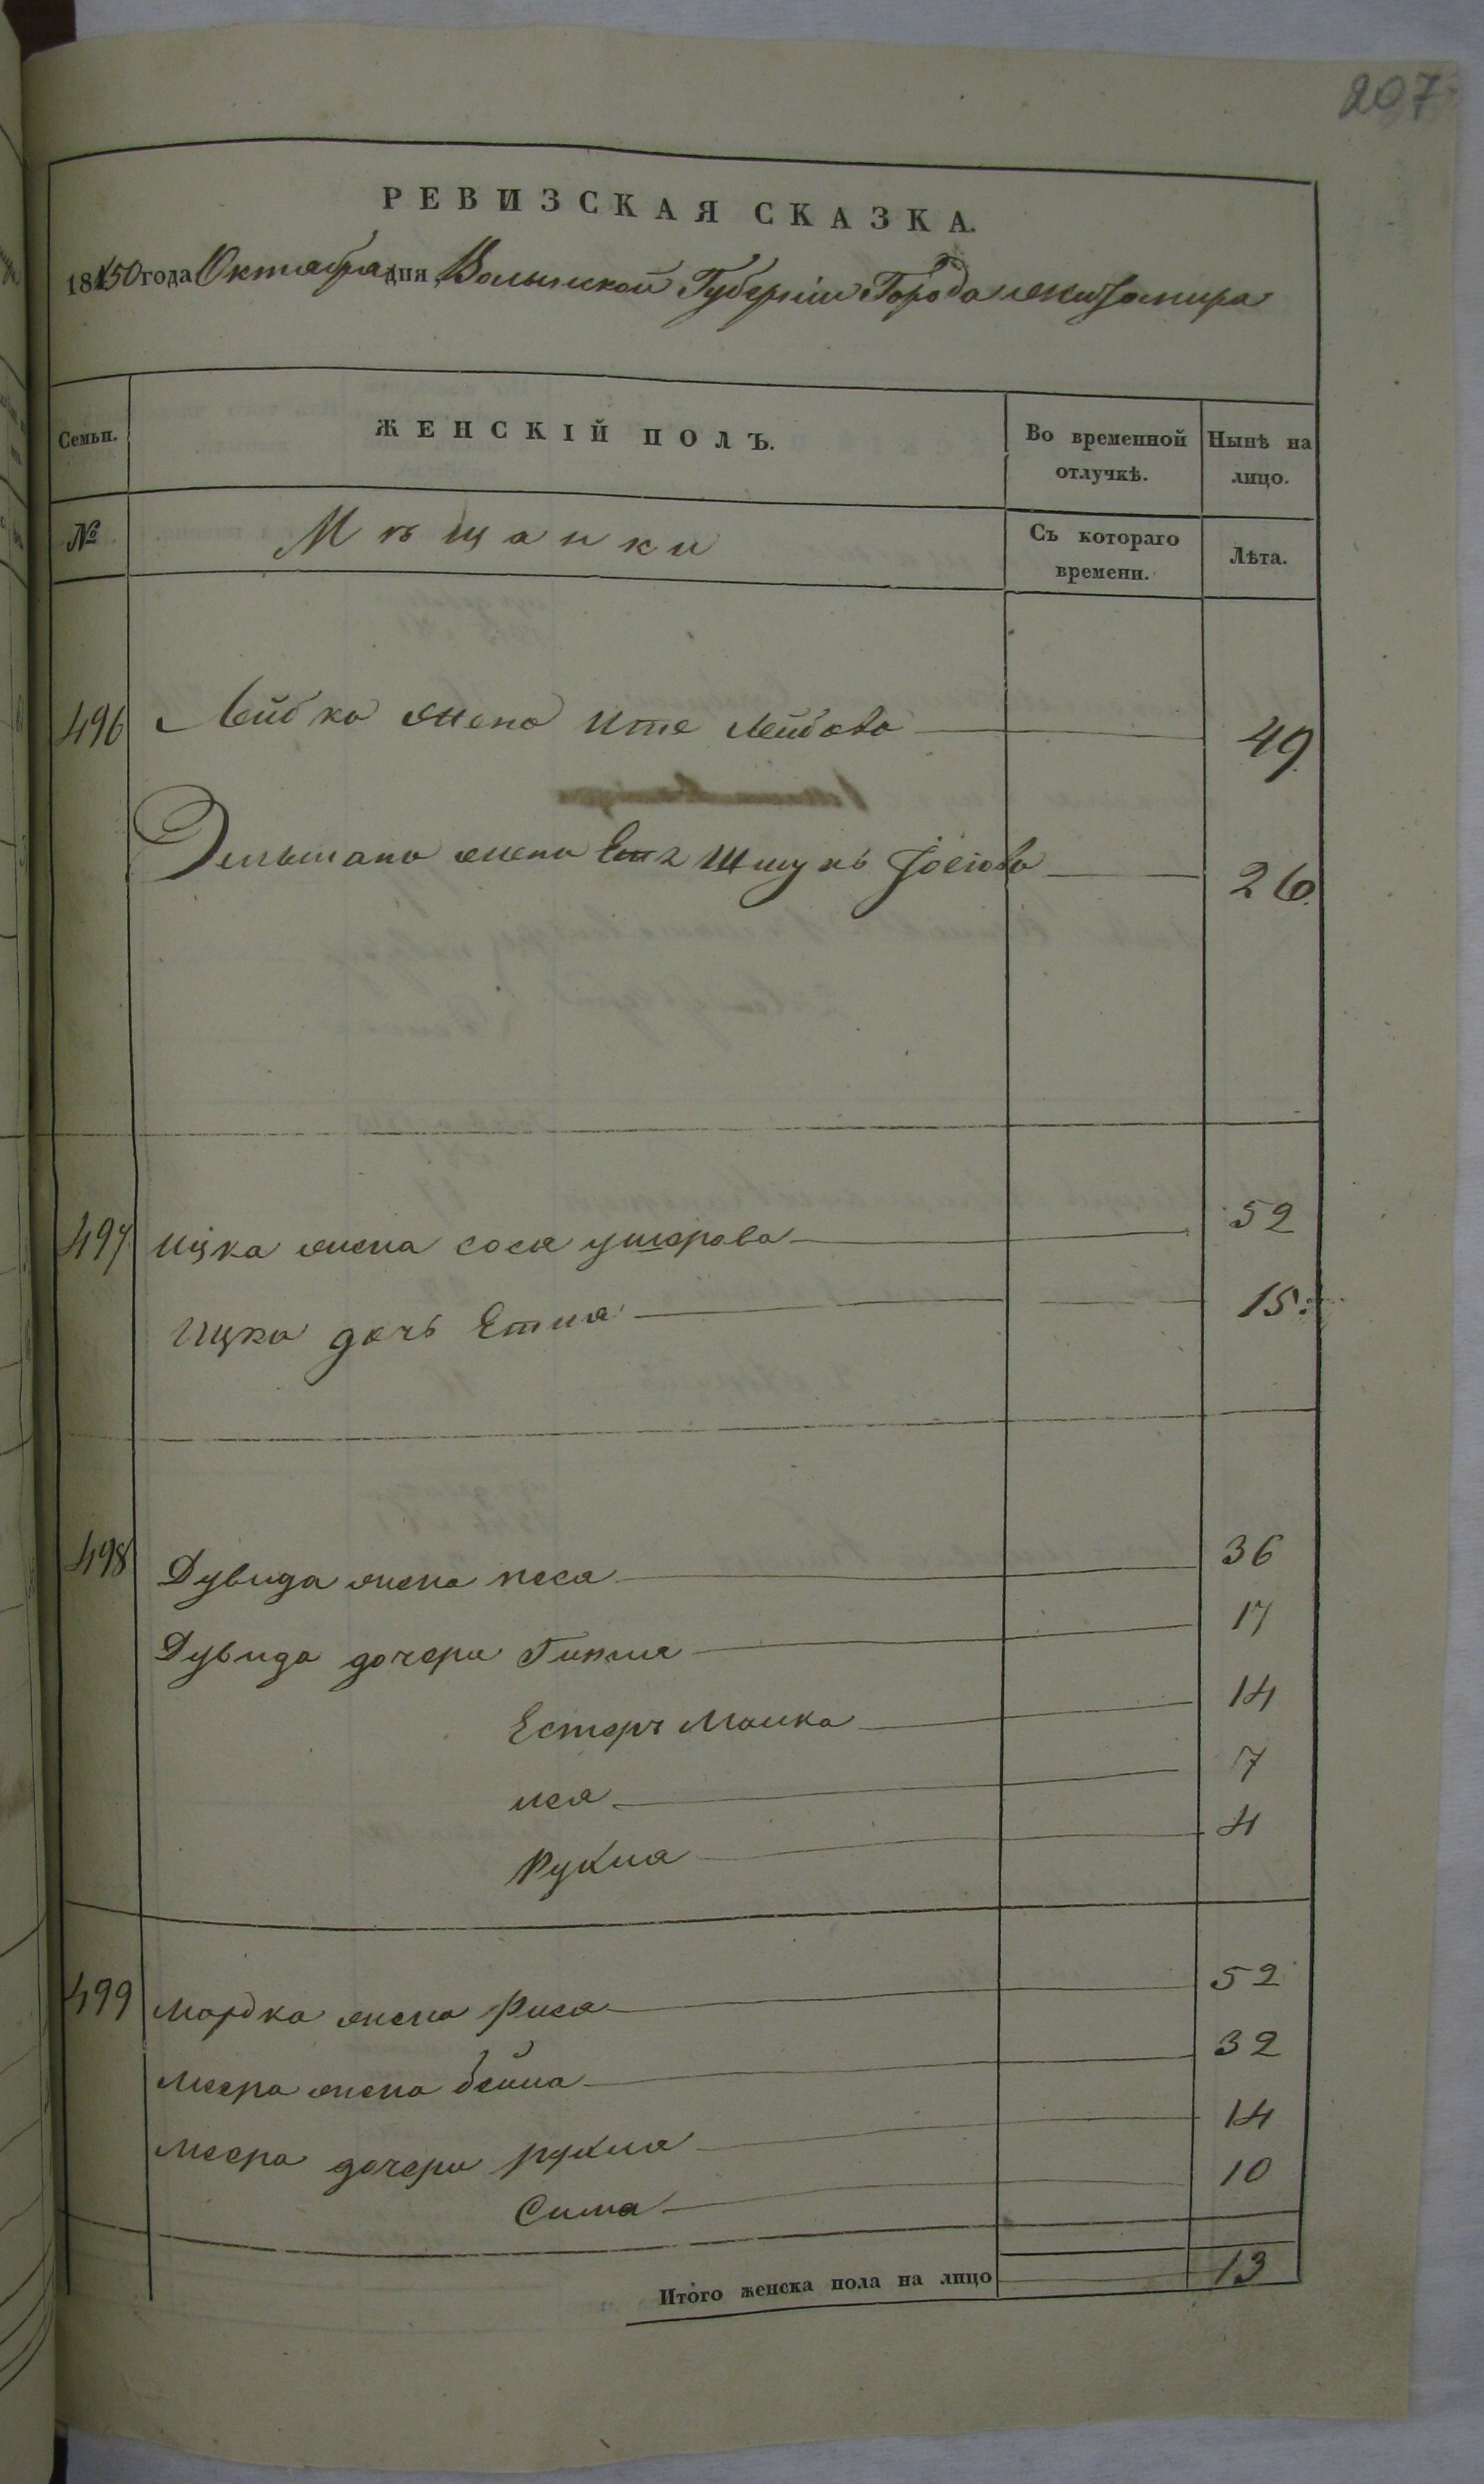 207
РЕВИЗСКАЯ СКАЗКА.
1850 года Октября дня Волынской Губерніи Города Житомира
Семьи.
ЖЕНСКІЙ ПОЛЪ.
Во временной отлучкѣ.
Нынѣ на лицо.
№
Мѣщанки
Съ котораго времени.
Лѣта.
496 Лейбка жена Ите Лейбова 49
жена 2 Іосіова 26
497 Ицка жена Сося Ушерова 52
Ицка дочь Етля 15
498 Дувида жена Песя 36
Дувида дочери Гитля 17
Естеръ Малка 14
Лея 7
Рухля 4
499 Мордка жена Рися 52
Меера жена Бейла 32
Меера дочери Рухля 14
Сима 10
Итого женска пола на лицо 13